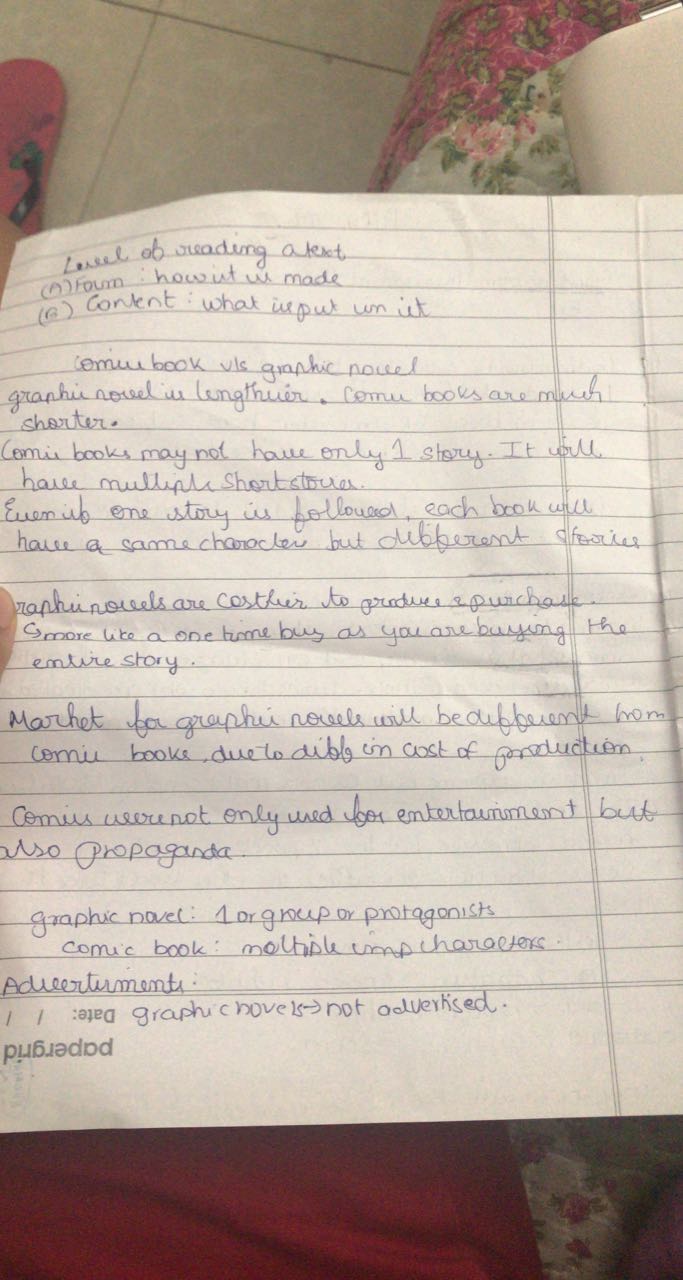 Level of reading a text
(A) Form : how it is made
(B) Content : what is put in it
comic book v/s graphic novel
graphic novel is lengthier. Comic books are much
shorter.
Comic books may not have only 1 story. It will
have multiple short stories.
Even if one story is followed, each book will
have a same character but different stories
raphic novels are costlier to produce & purchase.
↳ more like a one time buy as you are buying the
entire story.
Market for graphic novels will be different from
comic books, due to diff in cost of production.
Comics were not only used for entertainment but
also propaganda.
graphic novel : 1 or group or protagonists
comic book : multiple imp characters.
Advertisments :
graphic novels → not advertised.
Date: / /
papergrid